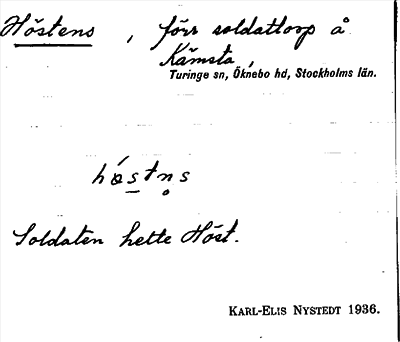 Höstens, förr soldattorp å
Kämsta,
Turinge sn, Öknebo hd, Stockholms län.
hö́stn̥s
Soldaten hette Höst.
KARL-ELIS NYSTEDT 1936.